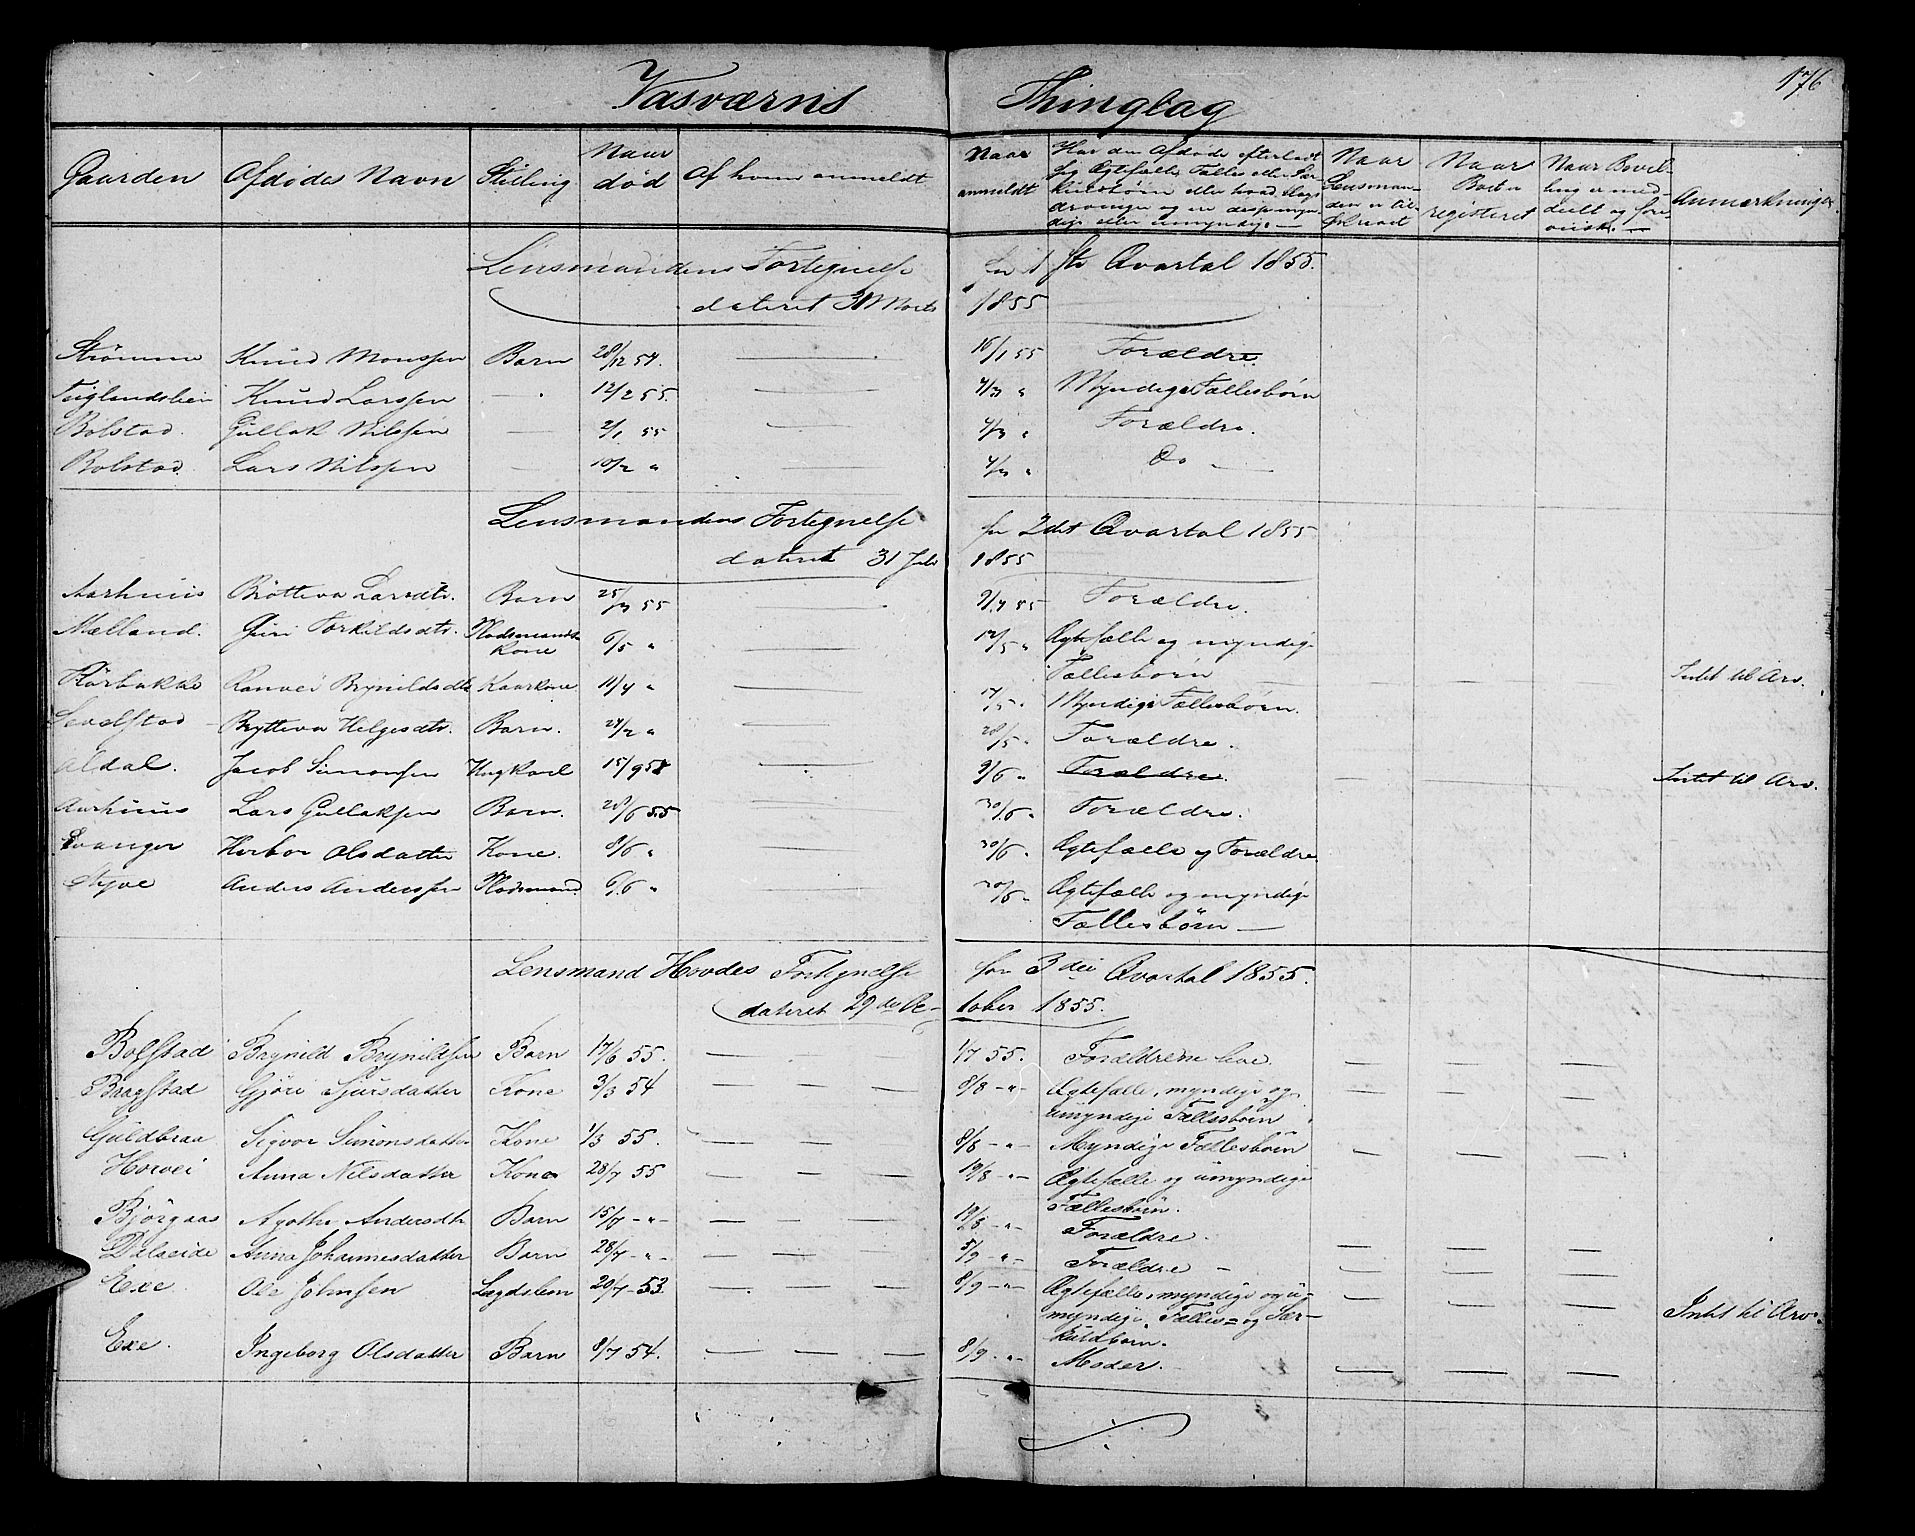 176
Vasværns Thinglag
Gaarden | Afdødes Navn | Stilling | Naar død | Af hvem anmeldt | Naar anmeldt | Har den Afdøde efterladt sig Ægtefælle, Fælles eller Særkuldsbørn eller hvad Slags Arvinger og ere disse myndige eller umyndige | Naar Lensmanden er tilskrevet | Naar Boet er registeret | Naar Bevilling er meddeelt og forevist | Anmærkninger
Lensmandens Fortegnelse for 1ste Qvartal 1855.
dateret 31 Marts 1855
Strømme | Knud Monssen | Barn | 28/12 54. | — | 16/1 55 | Forældre
Teiglandslien | Knud Larssen | — | 12/2 55. | — | 4/3 " | Myndige Fællesbørn
Bolstad | Gullak Nilssen | — | 2/1 55 | — | 4/3 " | Forældre.
Bolstad | Lars Nilssen | — | 10/2 " | | 4/3 " | Do —
Lensmandens Fortegnelse for 2det Qvartal 1855
dateret 31 Juli 1855
Aarhuus | Brötteva Larsdtr. | Barn | 25/3 55 | — | 9/4 55 | Forældre.
Mælland. | Guri Torkildsdtr. | Pladsmands Kone | 6/5 " | — | 12/5 " | Ægtefælle og myndige Fællesbørn
Hörbakke | Ranvei Brynildsdtr | Kaarkone | 11/4 " | — | 17/5 " | Myndige Fællesbørn. | — | — | — | Intet til Arv.
Sevalstad | Brytteva Helgesdtr. | Barn. | 24/2 " | — | 28/5 " | Forældre.
Aldal. | Jacob Simonsen | Ungkarl | 15/9 51 | — | 9/6 " | Forældre. | — | — | — | Intet til Arv.
Aarhuus | Lars Gullaksen | Barn. | 20/6 55 | — | 30/6 " | Forældre.
Evanger | Herbor Olsdatter | Kone. | 8/6 " | — | 30/6 " | Ægtefælle og Forældre
Styve | Anders Anderssen | Pladsmand | 6/6 " | — | 30/6 " | Ægtefælle og myndige Fællesbørn —
Lensmand Hovdes Fortegnelse for 3die Qvartal 1855.
dateret 29de October 1855.
Bolstad | Brynild Brynildsen | Barn | 17/6 55. | — — | 1/7 55. | Forældrene leve. | — | — | —
Braqstad | Gjöri Sjursdatter | Kone | 3/3 54 | — — — | 8/8 -"- | Ægtefælle, myndige og umyndige Fællesbörn | — | — | —
Guldbraa | Sigvor Simonsdatter | Kone | 1/3 55. | — — | 8/8 -"- | Myndige Fællesbörn | — | — | —
Horvei | Anna Nilsdatter | Kone | 28/7 55 | — — — | 19/8 -"- | Ægtefælle og umyndige Fællesbörn.
Bjørgaas | Agathe Andersdtr | Barn | 15/7 -"- | — — — | 19/8 -"- | Forældre. | — | — | —
Dalseide | Anna Johannesdatter | Barn | 28/7 -"- | — — | 5/9 -"- | Forældre — | — | — | —
Exe. | Ole Johnsen | Lægdslem | 20/7 - 53. | — — — | 8/9 -"- | Ægtefælle, myndige og umyndige Fælles- og Særkuldborn. | — | — | — | Intet til Arv.
Exe. | Ingeborg Olsdatter | Barn | 8/7 54. | — — — | 8/9 -"- | Moder. — | — | — | —